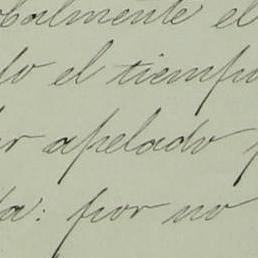 balmente el
do el tiempo
r apelado
da: por no